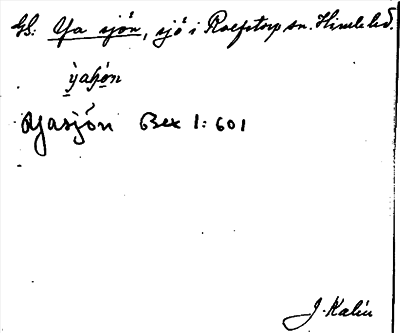 GS: Ya sjön, sjö i Roestorp sn. Himle hd.
yahȯ́n
Yasjön Bex 1:601
J. Kalén